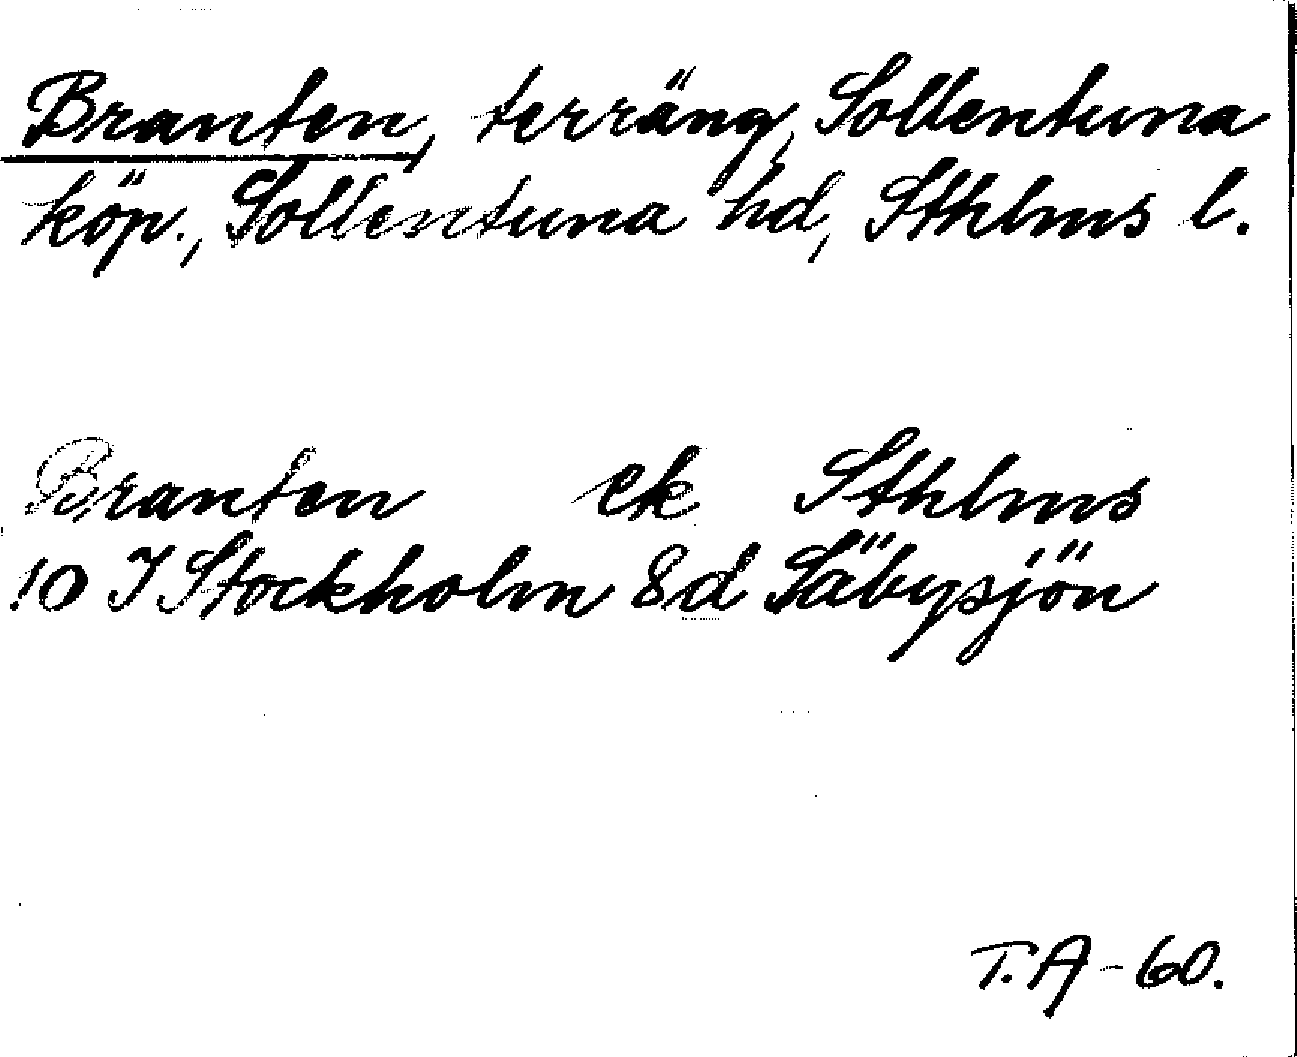 Branten, terräng, Sollentuna
köp., Sollentuna hd, Sthlms l.
Branten ek Sthlms
10 I Stockholm 8d Säbysjön
T.A-60.